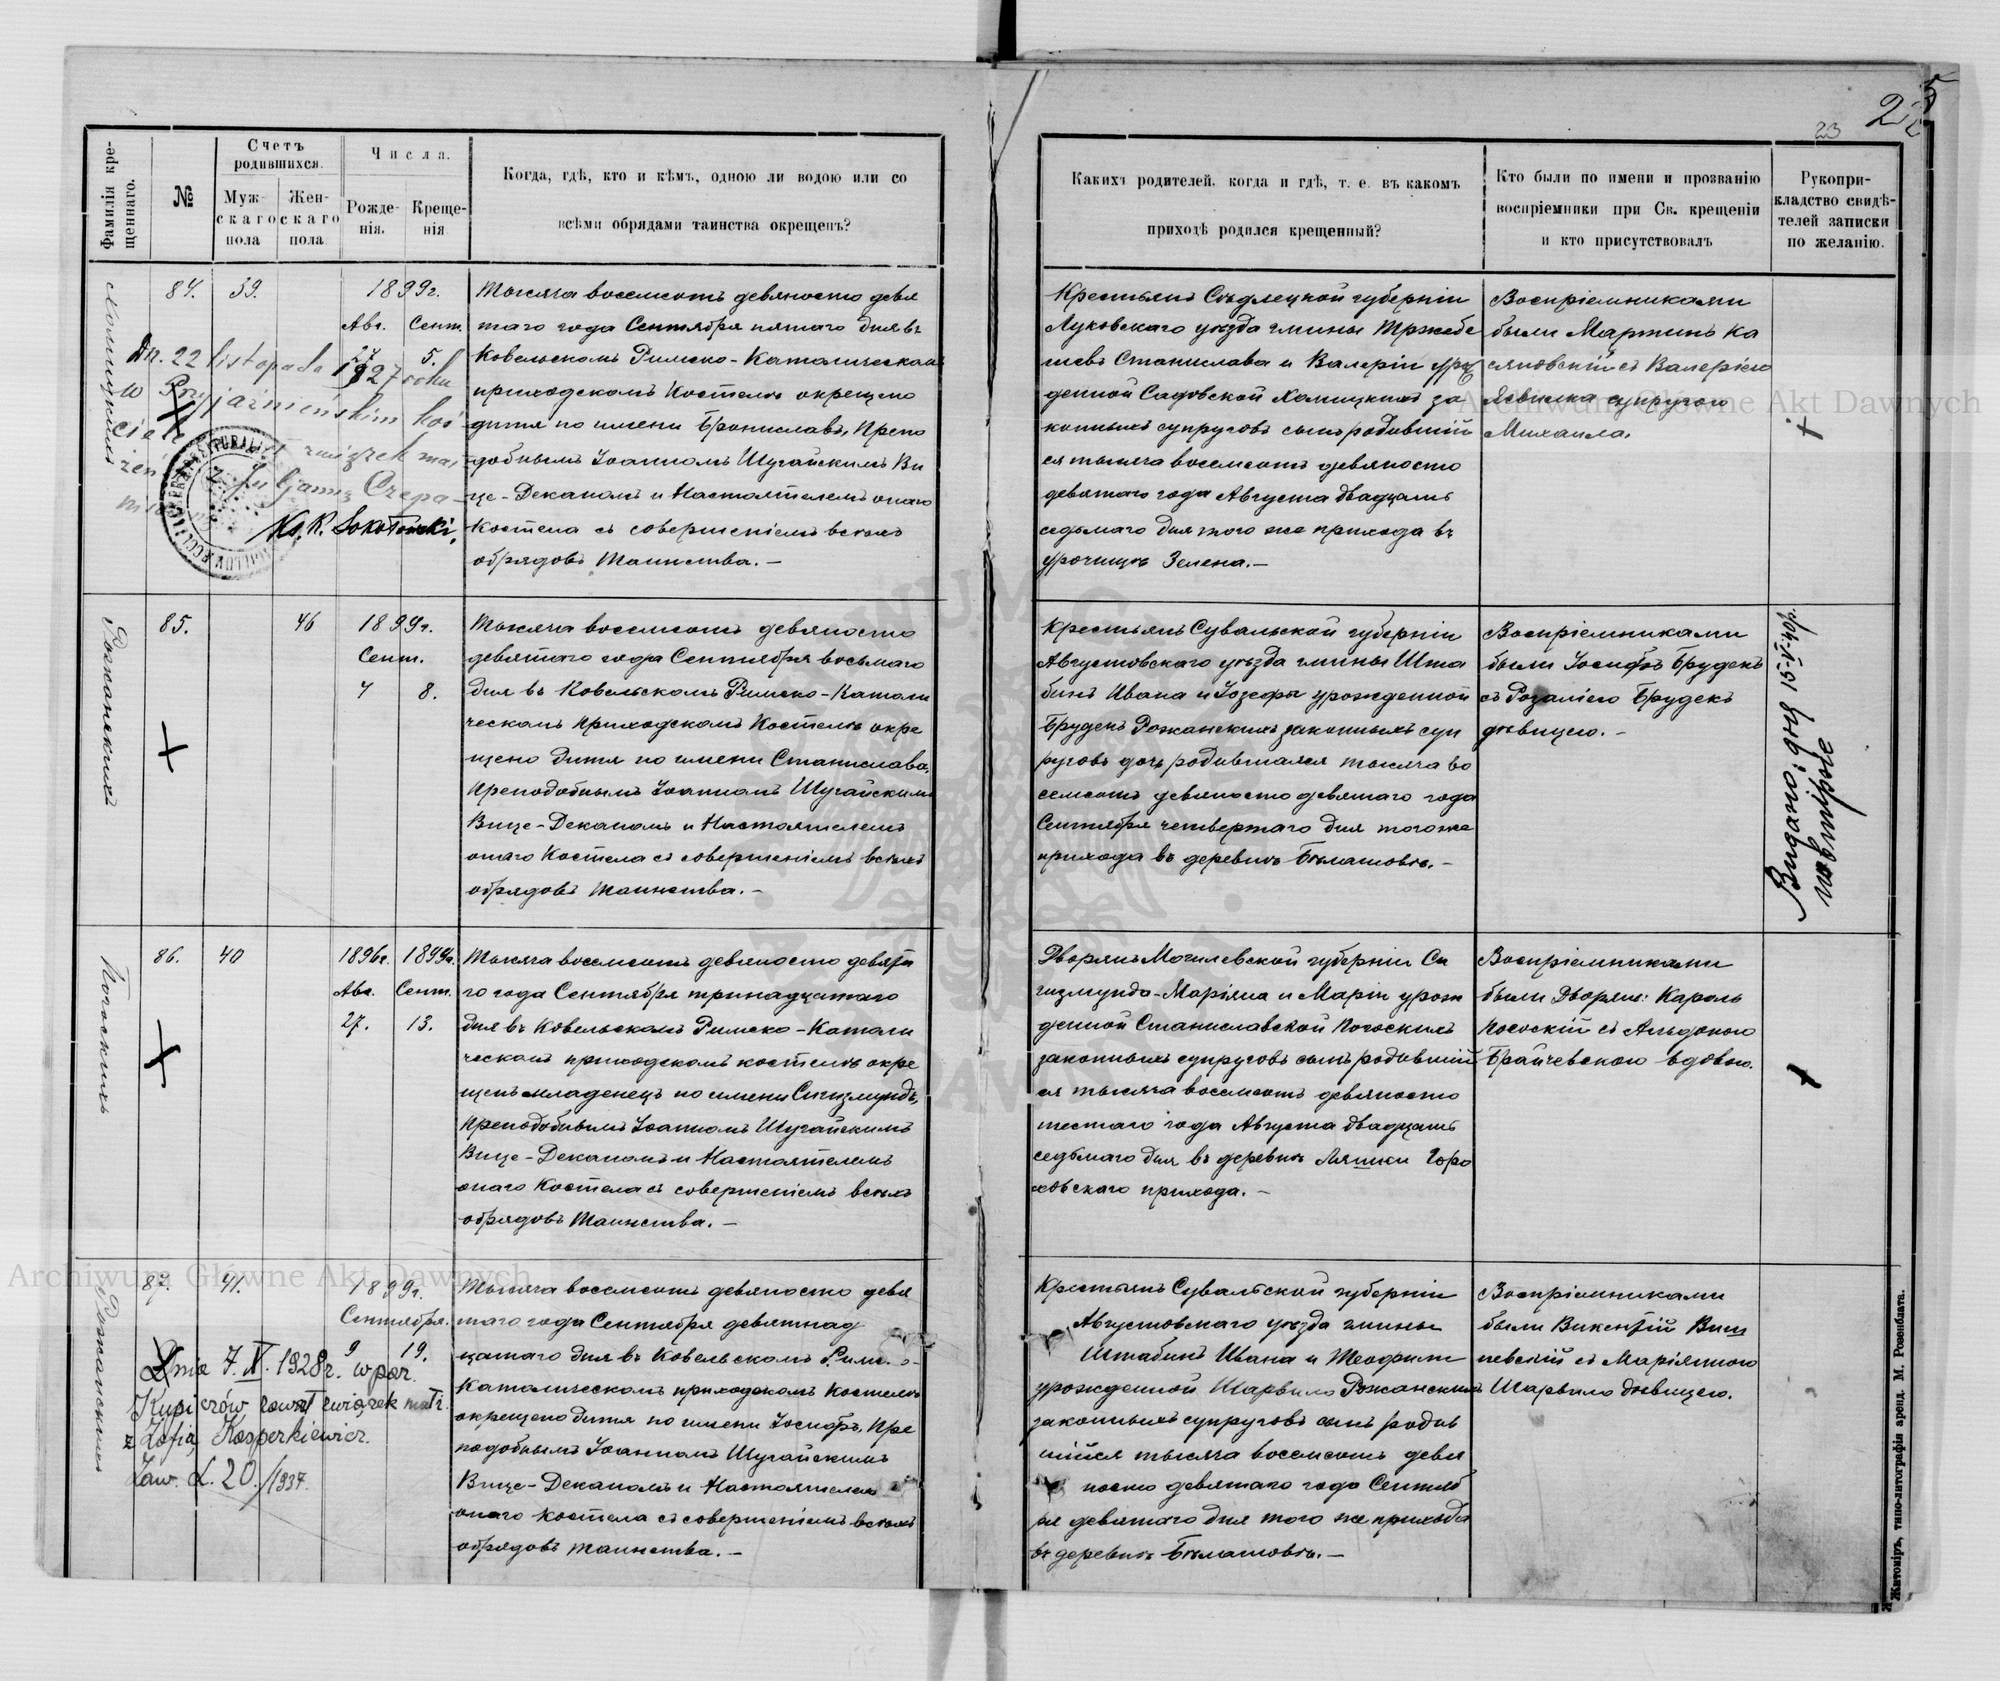 22
23
Фамилія кре-
щеннаго.
№
Счетъ
родившихся.
Муж-
скаго
пола
Жен-
скаго
пола
Числа.
Рожде-
нія.
Креще-
нія
Когда, гдѣ, кто и кѣмъ, одною ли водою или со
всѣми обрядами таинства окрещенъ?
Какихъ родителей, когда и гдѣ, т. е. въ какомъ
приходѣ родился крещенный?
Кто были по имени и прозванію
воспріемники при Св. крещеніи
и кто присутствовалъ
Рукопри-
кладство свидѣ-
телей записки
по желанію.
84. 39. 1899г.
Авг. Сент.
27 5.
Dn. 22 listopada 1927 roku
w Przyjaźnieńskim koś
ciele związek mał
żeń z Juljanną Czepa-
Ks. R. Sokołowski.
Тысяча восемсотъ девяносто девя
таго года Сентября пятаго дня въ
Ковельскомъ Римско-Католическомъ
приходскомъ Костелѣ окрещено
дитя по имени Брониславъ, Препо
добнымъ Іоанномъ Шугайскимъ Ви
це-Деканомъ и Настоятелемъ онаго
Костела съ совершеніемъ всѣхъ
обрядовъ Таинства.—
Крестьянъ Сѣдлецкой губерніи
Луковскаго уѣзда гмины Тржебе
шевъ Станислава и Валеріи урож
денной Садовской Хомицкихъ за
конныхъ супруговъ сынъ родившій
ся тысяча восемсотъ девяносто
девятаго года Августа двадцать
седьмаго дня того же прихода въ
урочищѣ Зелена.—
Воспріемниками
были Мартинъ Ка
сяновскій съ Валеріею
супругою
Михаила.
Рожанскихъ
85. 46 1899г.
Сент.
4 8.
Тысяча восемсотъ девяносто
девятаго года Сентября восьмаго
дня въ Ковельскомъ Римско-Католи
ческомъ приходскомъ Костелѣ окре
щено дитя по имени Станислава,
Преподобнымъ Іоанномъ Шугайскимъ
Вице-Деканомъ и Настоятелемъ
онаго Костела съ совершеніемъ всѣхъ
обрядовъ Таинства.—
Крестьянъ Сувальской губерніи
Августовскаго уѣзда гмины Шта
бинъ Ивана и Іозефы урожденной
Бруденъ Рожанскихъ законныхъ суп
руговъ дочь родившаяся тысяча во
семсотъ девяносто девятаго года
Сентября четвертаго дня тогоже
прихода въ деревнѣ Бѣлашовѣ.—
Воспріемниками
были Іосифъ Бруденъ
съ Розаліею Брудекъ
дѣвицею.—
Видано: дня 15-V-40р.
86. 40 1896г. 1899г.
Авг. Сент.
27. 13.
Тысяча восемсотъ девяносто девята
го года Сентября тринадцатаго
дня въ Ковельскомъ Римско-Католи
ческомъ приходскомъ костелѣ окре
щенъ младенецъ по имени Сигизмундъ,
Преподобнымъ Іоанномъ Шугайскимъ
Вице-Деканомъ и Настоятелемъ
онаго Костела съ совершеніемъ всѣхъ
обрядовъ Таинства.—
Дворянъ Могилевской губерніи Си
гизмунда-Маріана и Маріи урож
денной Станиславской Погоскихъ
законныхъ супруговъ сынъ родившій
ся тысяча восемсотъ девяносто
шестаго года Августа двадцать
седьмаго дня въ деревнѣ Ляшки Горо
ховскаго прихода.—
Воспріемниками
были Дворяне: Кароль
съ Альдоною
Брайчевскою вдовою.
Рожанскихъ
87. 41. 1899г.
Сентября.
9 19.
Dnia 7.X. 1928r. w par.
Kupiczów zawarł związek małż.
z Zofią Kasperkiewicz.
Zaw. L. 20./1937.
Тысяча восемсотъ девяносто девя
таго года Сентября девятнад
цатаго дня въ Ковельскомъ Римско-
Католическомъ приходскомъ Костелѣ
окрещено дитя по имени Іосифъ, Пре
подобнымъ Іоанномъ Шугайскимъ
Вице-Деканомъ и Настоятелемъ
онаго костела съ совершеніемъ всѣхъ
обрядовъ таинства.—
Крестьянъ Сувальской губерніи
Августовскаго уѣзда гмины
Штабинъ Ивана и Теофили
урожденной Шарвило Рожанскихъ
законныхъ супруговъ сынъ родив
шійся тысяча восемсотъ девя
носто девятаго года Сентяб
ря девятаго дня того же прихода
въ деревнѣ Бѣлашовѣ.—
Воспріемниками
были Викентій Виш
невскій съ Маріянною
Шарвило дѣвицею.
Житоміръ, типо-литографія аренд. М. Розенблата.
Archiwum Główne Akt Dawnych
Archiwum Główne Akt Dawnych